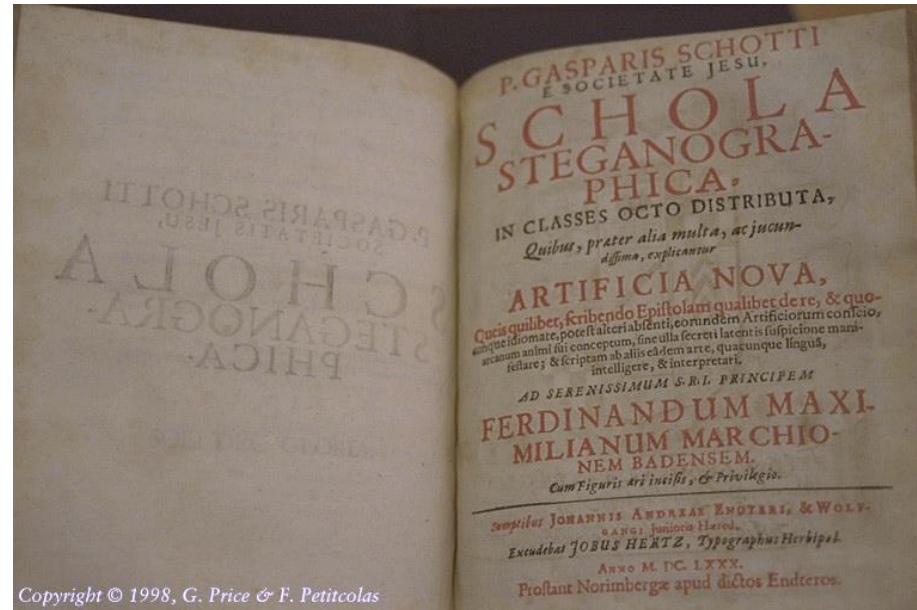 P. GASPARIS SCHOTTI
SOCIETATIS JESU,
SCHOLA
STEGANOGRA-
PHICA.
P. GASPARIS SCHOTTI
E SOCIETATE JESU,
SCHOLA
STEGANOGRA-
PHICA,
IN CLASSES OCTO DISTRIBUTA,
Quibus, præter alia multa, ac jucun-
dissima, explicantur
ARTIFICIA NOVA,
Queis quilibet, scribendo Epistolam qualibet de re, & quo-
cunque idiomate, potest alteri absenti, eorundem Artificiorum conscio,
arcanum animi sui conceptum, sine ulla secreti latentis suspicione mani-
festare; & scriptam ab aliis eâdem arte, quacunque linguâ,
intelligere, & interpretari.
AD SERENISSIMUM S.R.I. PRINCIPEM
FERDINANDUM MAXI-
MILIANUM MARCHIO-
NEM BADENSEM.
Cum Figuris æri incisis, & Privilegio.
Sumptibus JOHANNIS ANDREAE ENDTERI, & WOLF-
GANGI Junioris Hæred.
Excudebat JOBUS HERTZ, Typographus Herbipol.
ANNO M. DC. LXXX.
Prostant Norimbergæ apud dictos Endteros.
Copyright © 1998, G. Price & F. Petitcolas